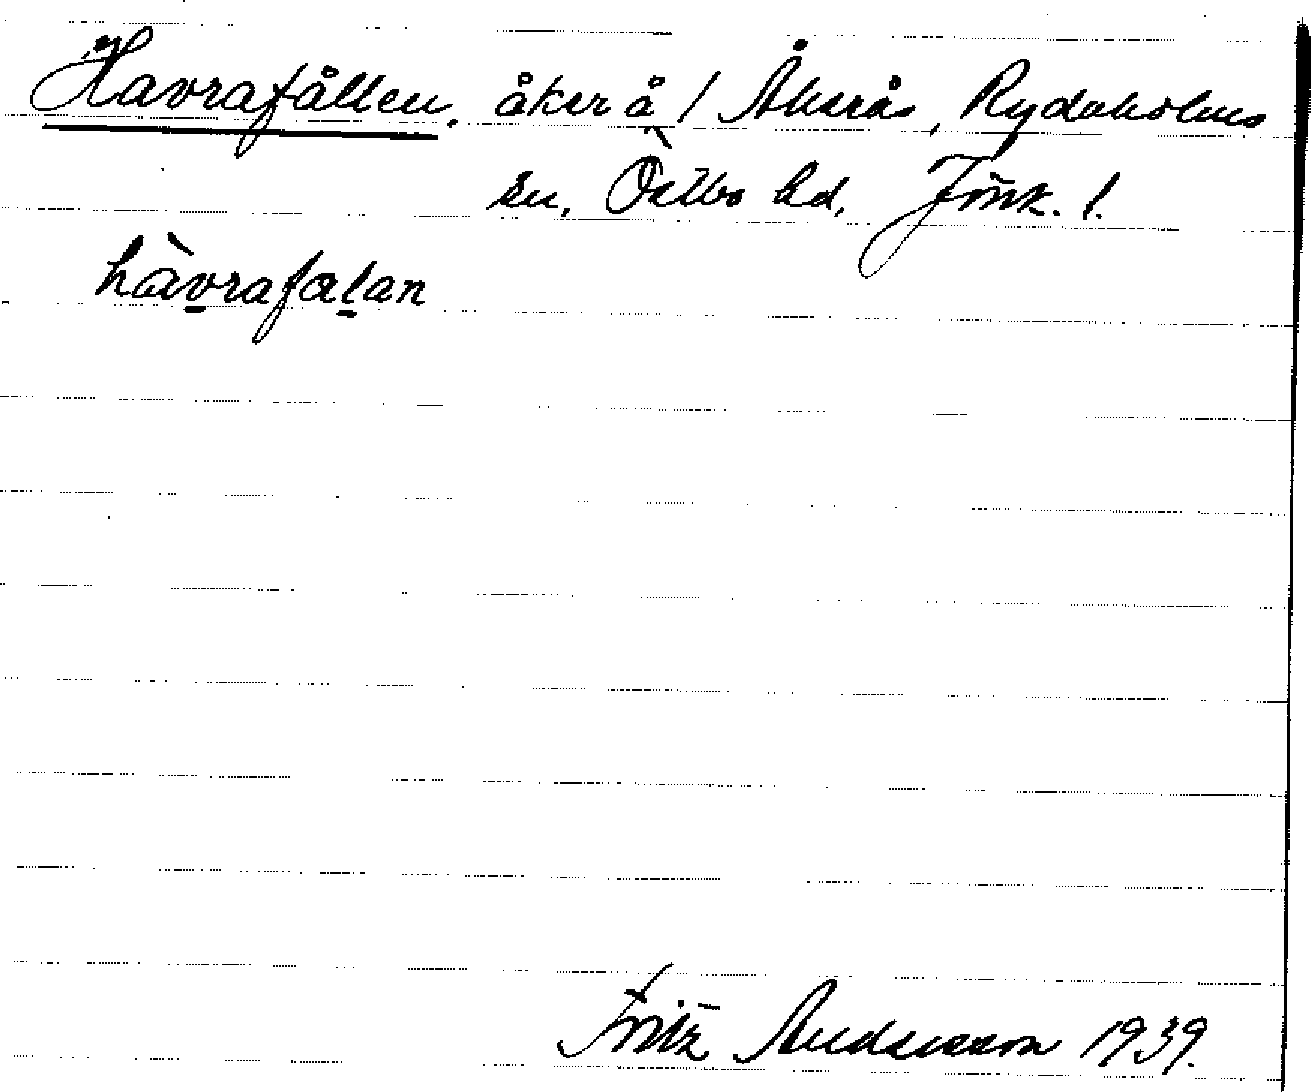 Havrafållen, åker å / Åkerås, Rydaholms
sn, Östbo hd, Jönk. l.
hàvrafalan
Fritz Andersson 1939.